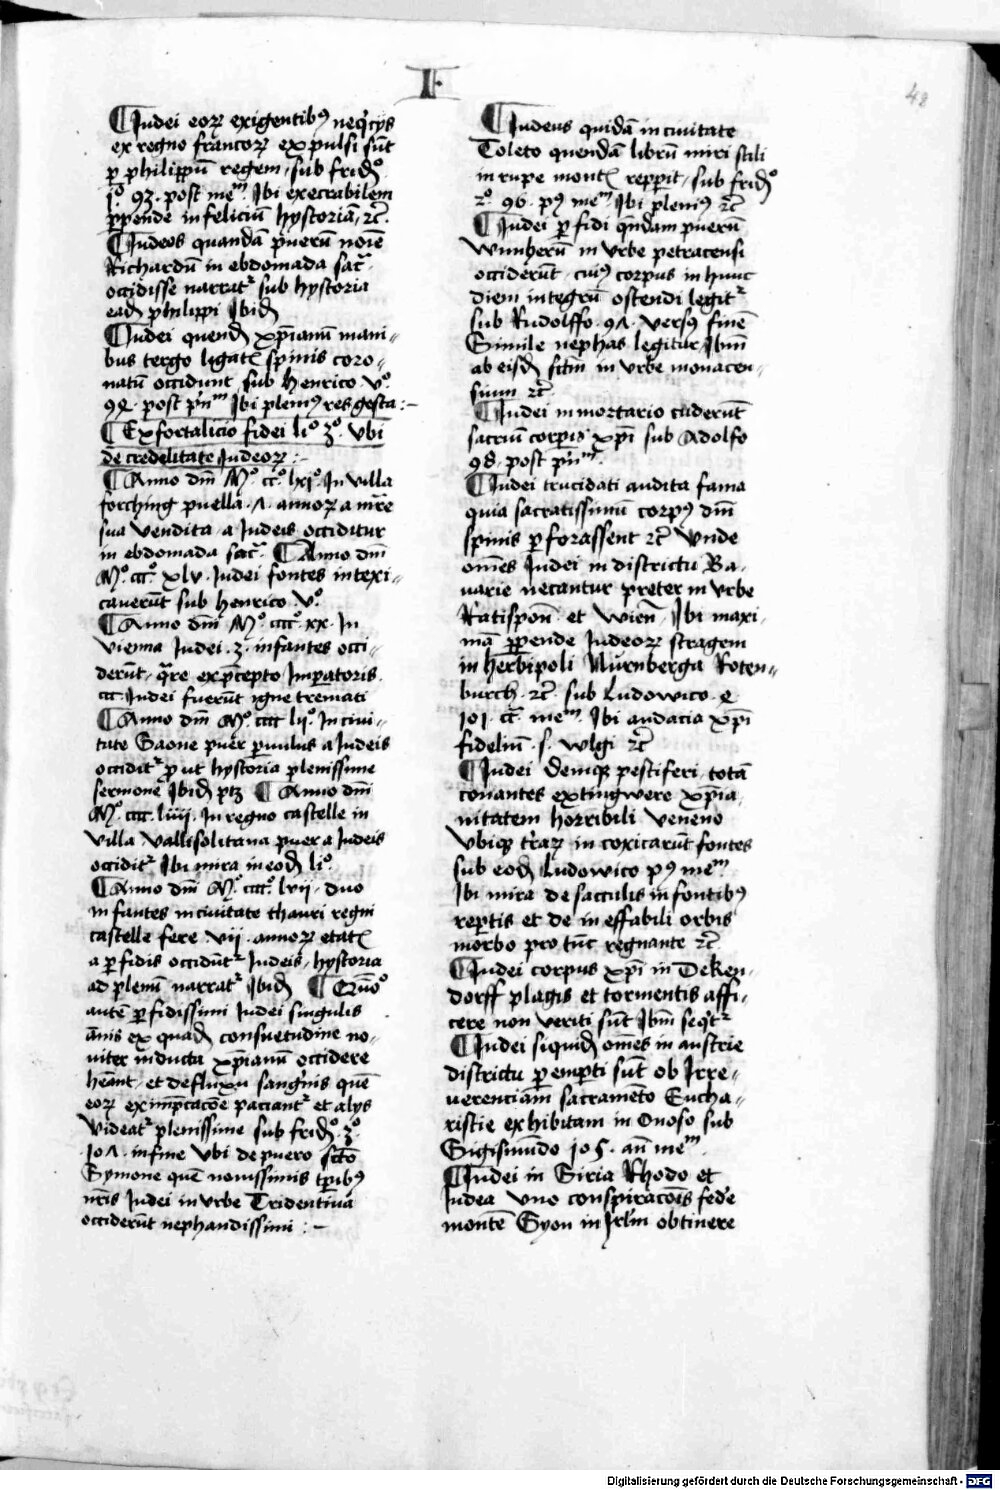 I
48
¶ Iudei eoꝝ exigentibꝰ neqͥcijs
ex regno francoꝝ expulsi sūt
ꝑ philippū regem, sub fridͦ.
1ͦ. 93. post meᵐ. Ibi execrabilem
ꝑpende infeliciū hystoriā, ⁊c̄.
¶ Iudeos quandā puerū noīe
Richardū in ebdomada sac̄ꝭ
occidisse narratʳ sub hystoria
eadꝫ philippi Ibidꝫ
¶ Iudei quendꝫ xp̄ianū mani⸗
bus tergo ligatꝭ spinis coro⸗
natū occidunt, sub Henrico vͦ.
92. post pn̄ᵐ Ibi plenꝰ res gesta :~
¶ Ex fortalicio fidei liͦ 3ͦ. vbi
de credelitate Iudeoꝝ :~
¶ Anno dn̄i Mͦ. ccͦ. lxjͦ. In villa
forching puella .7. annoꝝ a mr̄e
sua vendita a Iudeis occiditur
in ebdomada sac̄ꝭ. ¶ Anno dn̄i
Mͦ. cccͦ. xlv. Iudei fontes intexi⸗
cauerūt sub henrico vͦ.
¶ Anno dn̄i Mͦ. ccccͦ. xx. In
vienna Iudei .3. infantes occi⸗
derūt, qͣre ex p̄cepto Imꝑatoris.
ccc. Iudei fuerūt igne cremati
¶ Anno dn̄i Mͦ. cccc lijͦ. In ciui⸗
tate Saone puer ꝑuulus a Iudeis
occiditʳ ꝓut hystoria plenissime
sermone Ibidꝫ ptꝫ ¶ Anno dn̄i
Mͦ. cccc. liiij. In regno castelle in
villa vallisolitana puer a Iudeis
occiditʳ Ibi mira in eodꝫ liͦ.
¶ Anno dn̄i Mͦ. ccccͦ. lvij. duo
infantes in ciuitate thauri regni
castelle fere vij. annoꝝ etatꝭ
a ꝑfidis occidūtʳ Iudeis, hystoria
ad plenū narratʳ Ibidꝫ ¶ Qūoͦ
autē ꝑfidissimi Iudei singulis
ānis ex quadꝫ consuetudine no⸗
uiter inducta xp̄ianū occidere
heānt, et defluxū sangͥnis quē
eoꝝ ex imp̄cacōe paciantʳ et alijs
videatʳ plenissime sub fridͦ. 3ͦ.
107. in fine vbi de puero sctō
Symone quē nouissimis tꝑibꝰ
nr̄is Iudei in vrbe Tridentina
occiderūt nephandissimi :~
¶ Iudeus quidā in ciuitate
Toleto quendā librū miri stili
in rupe montꝭ repꝑit, sub fridͦ.
2ͦ. 96. pꝰ meᵐ. Ibi pleniꝰ ⁊c̄
¶ Iudei ꝑfidi qn̄dam puerū
Wernherū in vrbe petracensi
occiderūt, cuiꝰ corpus in hunc
diem integrū ostendi legitʳ
sub Rudolffo. 97. versꝰ finē
Simile nephas legitur Ibm̄
ab eisdꝫ fctm̄ in vrbe monacen⸗
sium ⁊c̄.
¶ Iudei in mortario tuderūt
sacrū corpus xp̄i sub Adolfo
98. post pn̄ᵐ.
¶ Iudei trucidati audita fama
quia sacratissimū corpꝰ dn̄i
spinis ꝑforassent ⁊c̄ vnde
om̄es Iudei in districtu Ba⸗
uarie necantur preter in vrbe
Ratispoñ et wieñ, Ibi maxi⸗
mā ꝑpende Iudeoꝝ stragem
in herbipoli Nurnberga Roten⸗
burch ⁊c̄. sub Ludowico. 4
101. cc̄. meᵐ. Ibi audacia xp̄i
fideliū .s. wlgi ⁊c̄
¶ Iudei deniqꝫ pestiferi, totā
conantes extingwere xp̄ia⸗
nitatem horribili veneno
vbiqꝫ tr̄aꝝ intoxicarūt fontes
sub eodꝫ Ludowico pꝰ meᵐ.
Ibi mira de sacculis in fontibꝰ
reꝑtis et de ineffabili orbis
morbo pro tūc regnante ⁊c̄.
¶ Iudei corpus xp̄i in Deken⸗
dorff plagis et tormentis affi⸗
cere non veriti sūt Ibm̄ seqͥtʳ
¶ Iudei siquidꝫ om̄es in austrie
districtu ꝑempti sūt ob Irre⸗
uerenciam sacramēto Eucha⸗
ristie exhibitam in Onoso sub
Sigismūdo 105. añ meᵐ.
¶ Iudei in Siria Rhodo et
Iudea vno conspiracōis fedeͬe
montē Syon in Jrl̄m obtinere
Digitalisierung gefördert durch die Deutsche Forschungsgemeinschaft - DFG